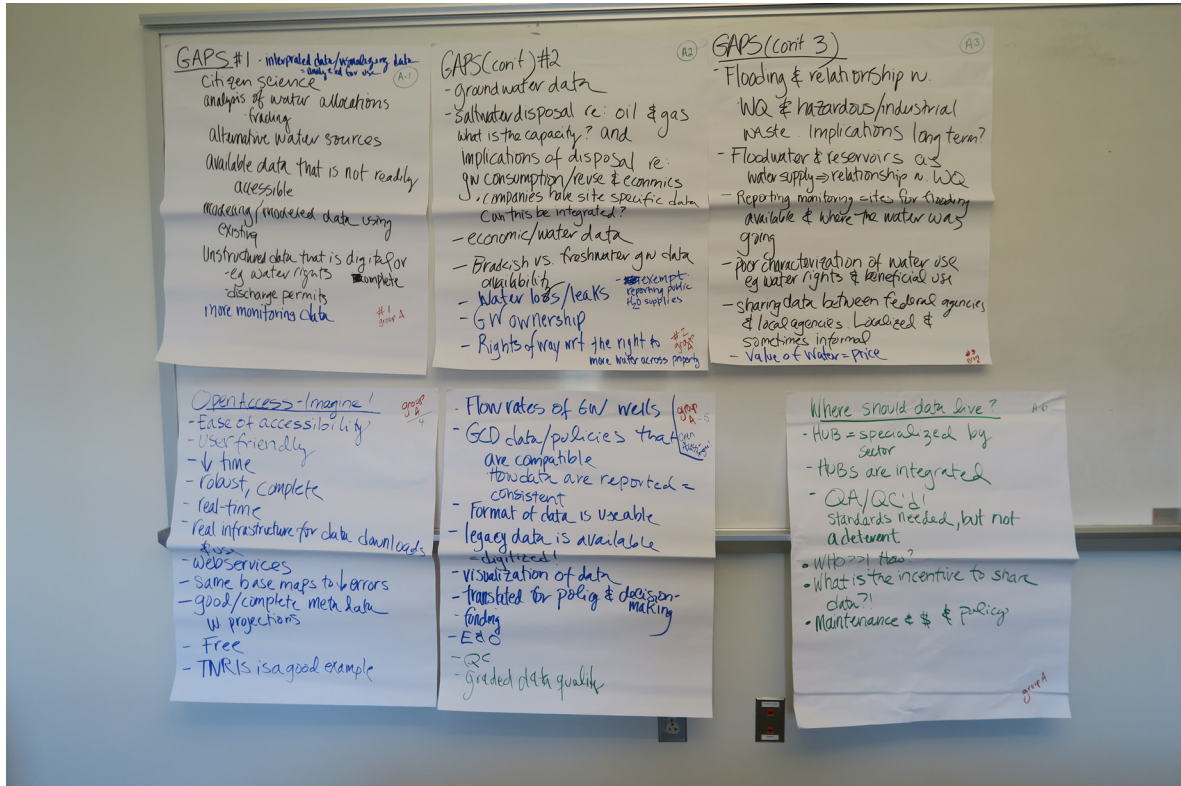 GAPS #1 - interpreted data/visualizing data
= analyzed for use
A-1
Citizen science
analysis of water allocations
trading
alternative water sources
available data that is not readily
accessible
modeling/modeled data using
existing
Unstructured data that is digital or
- eg water rights complete
- discharge permits
more monitoring data
#1
group A
GAPS (cont) #2
A2
- groundwater data
- Saltwater disposal re: oil & gas
what is the capacity? and
implications of disposal re:
gw consumption/reuse & econmics
• companies have site specific data
Can this be integrated?
- economic/water data
- Brackish vs. freshwater gw data
availability
- exempt
reporting public
H2O supplies
- Water loss/leaks
- GW ownership
- Rights of way wrt the right to
move water across property
#2
group
A
GAPS (cont 3)
A3
- Flooding & relationship w.
WQ & hazardous/industrial
waste. Implications long term?
- Floodwater & reservoirs as
water supply ⇒ relationship w. WQ
- Reporting monitoring sites for flooding
available & where the water was
going
- poor characterization of water use
eg water rights & beneficial use
- sharing data between federal agencies
& local agencies. Localized &
sometimes informal
- Value of Water = price
#3
Open Access - Imagine!
group
A
4
- Ease of accessibility
- User friendly
- ↓ time
- robust, complete
- real-time
- real infrastructure for data downloads
& use
- webservices
- Same base maps to ↓ errors
- good/complete meta data
w projections
- Free
- TNRIS is a good example
- Flow rates of GW wells
group
A-5
open
- GCD data/policies that
are compatible
How data are reported =
consistent
- Format of data is useable
- legacy data is available
= digitized!
- visualization of data
- translated for policy & decision-
making
- funding
- E&O
- QC
- graded data quality
Where should data live?
A-6
- HUB = specialized by
sector
- HUBs are integrated
- QA/QC'd!
standards needed, but not
a deterent
• WHO??! How?
• What is the incentive to share
data?!
• Maintenance & $ & policy
group A